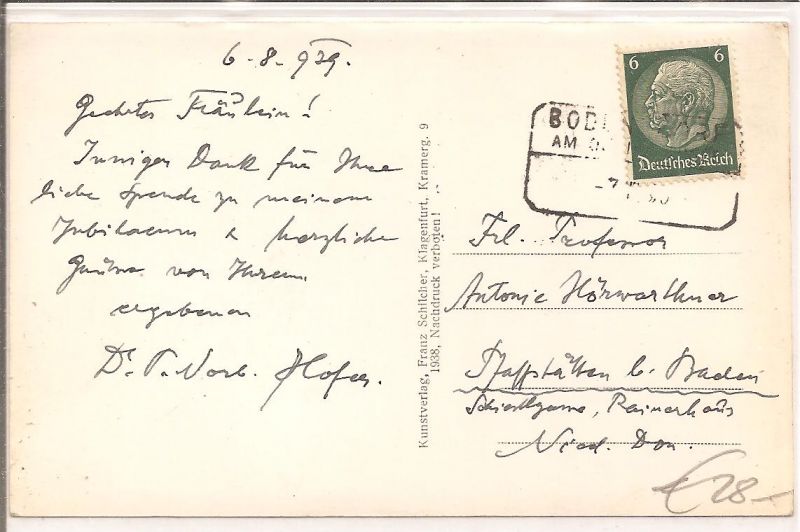 6-8-939.
Geehrtes Fräulein!
Innigen Dank für Ihre
liebe Spende zu meinem
Jubilaeum & herzliche
Grüsse von Ihrem
ergebenen
Dr. P. Norb. Hofer.
Kunstverlag, Franz Schilcher, Klagenfurt, Kramerg. 9
1938, Nachdruck verboten!
6 6
Deutsches Reich
BOD
AM
Frl. Professor
Antonie Hörwarthner
Pfaffstätten b. Baden
Rainerhaus
Nied. Don.
€ 28-